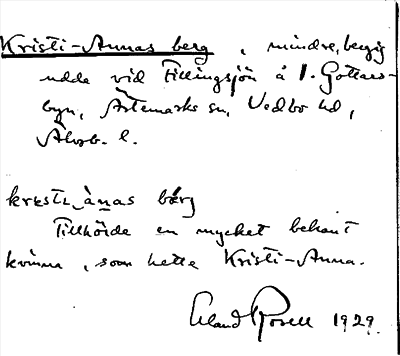 Kristi-Annas berg, mindre, bergig
udde vid Tillingsjön å V. Gottars-
byn, Ärtemarks sn, Vedbo hd,
Älvsb. l.
krɛsti_ànas bárg
Tillhörde en mycket bekant
kvinna, som hette Kristi-Anna.
Erland Rosell 1929.